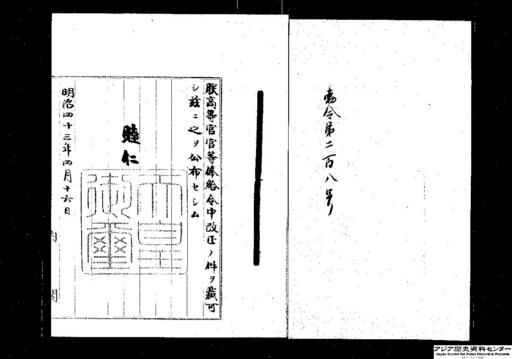 勅令第二百八号
朕高等官官等俸給令中改正ノ件ヲ裁可
シ茲ニ之ヲ公布セシム
睦仁
天皇
御璽
明治四十三年四月十六日
内閣
アジア歴史資料センター
Japan Center for Asian Historical Records